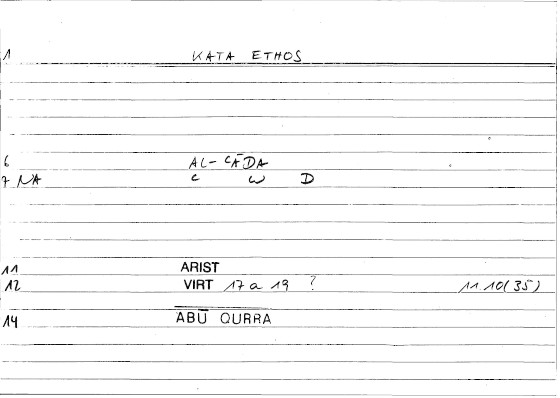 1 KATA ETHOS
6 AL-ʿĀDA
7 NA ʿ W D
11 ARIST
12 VIRT 17 a 19 ? 11 10(35)
14 ABŪ QURRA